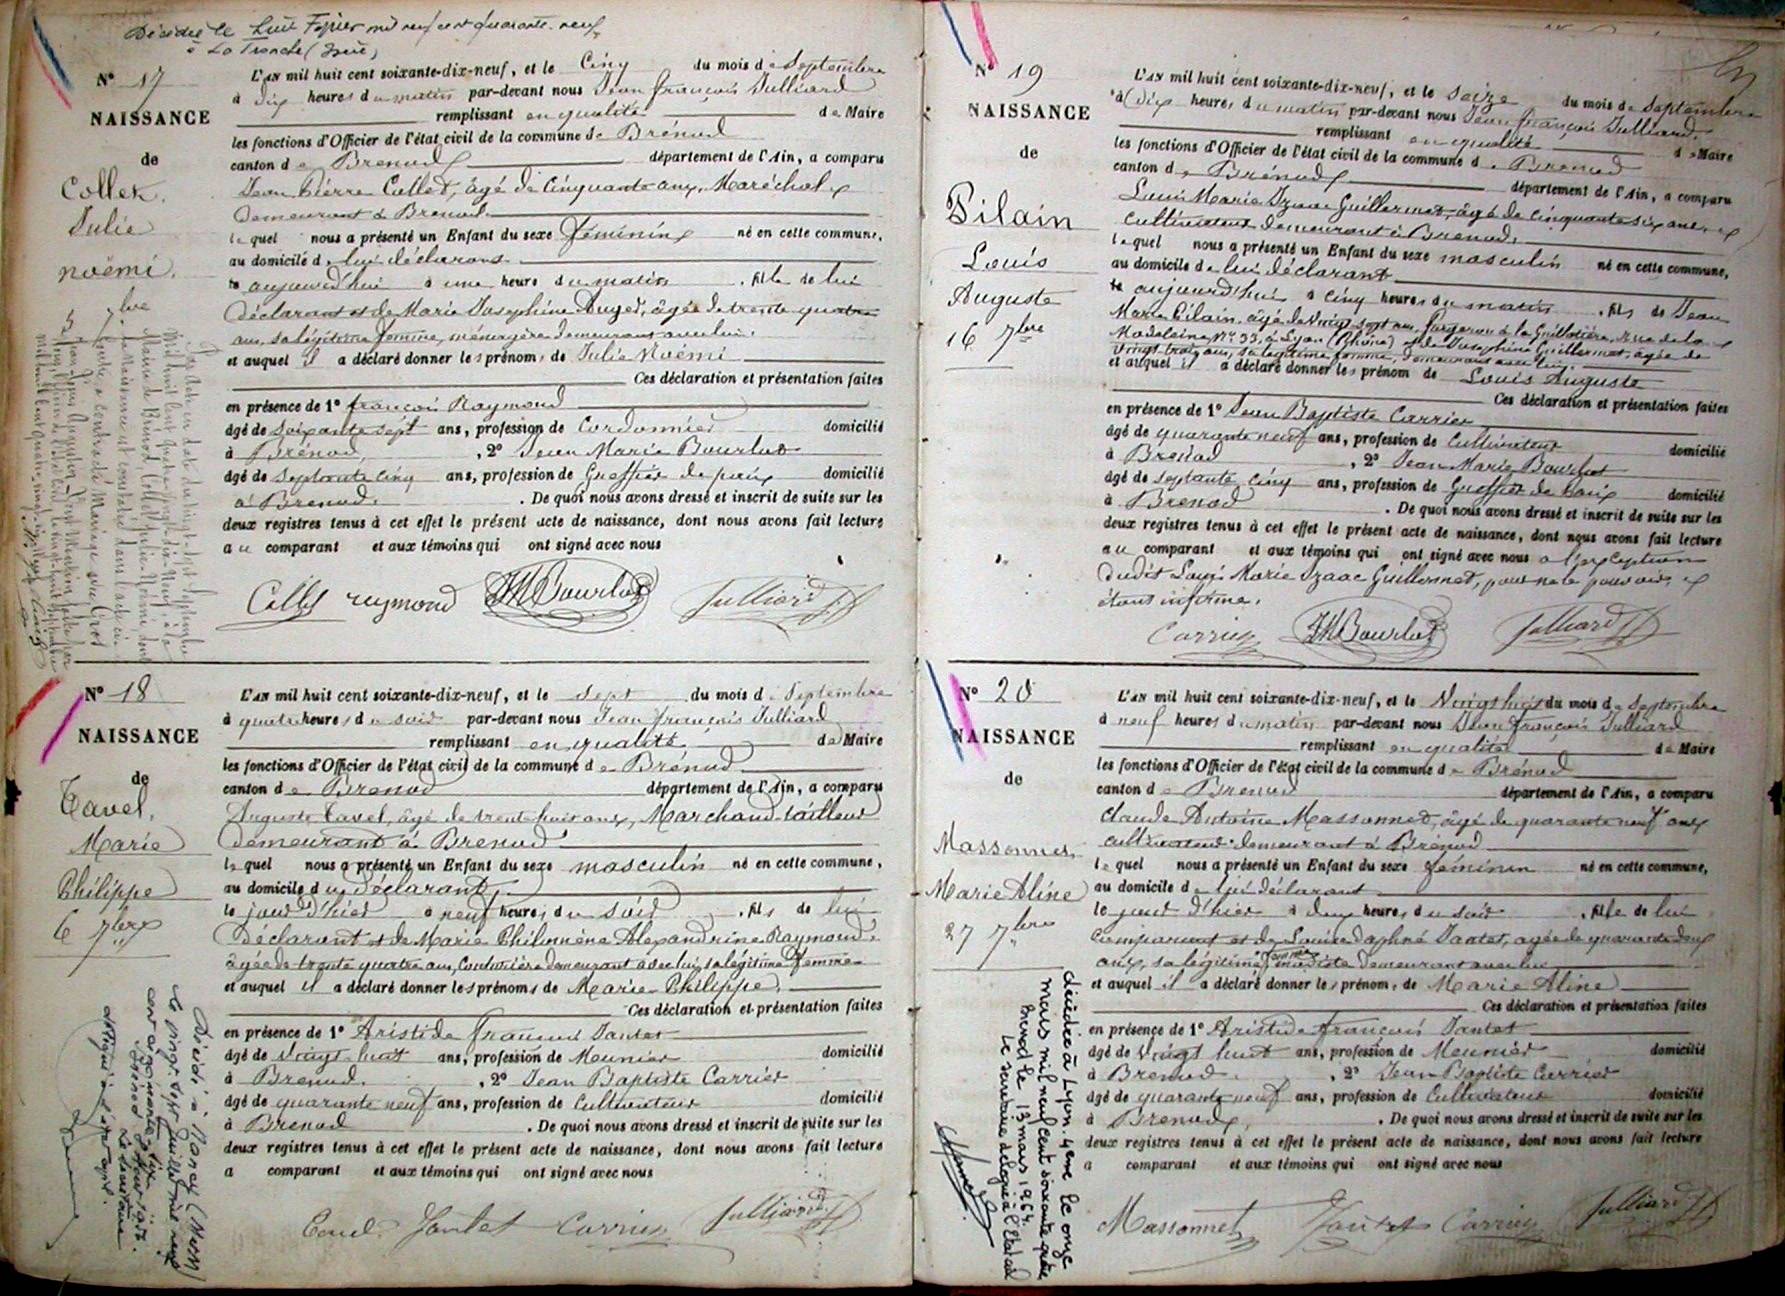 Décédée le huit Février mil neuf cent quarante-neuf
à La Tronche (Isère)
N° 17
NAISSANCE
de
Collet
Julie
noëmi.
5 7bre
L'AN mil huit cent soixante-dix-neuf, et le Cinq du mois de Septembre
à dix heures du matin par-devant nous Jean François Julliard
remplissant en qualité de Maire
les fonctions d'Officier de l'état civil de la commune de Brénod
canton de Brenod département de l'Ain, a comparu
Jean Pierre Collet, âgé de Cinquante ans, Maréchal
demeurant à Brenod.
lequel nous a présenté un Enfant du sexe féminin né en cette commune,
au domicile de lui déclarant
le aujourd'hui à une heure du matin , fille de lui
déclarant et de Marie Josephine Auger, âgée de trente quatre
ans, sa légitime femme, ménagère demeurant avec lui.
et auquel il a déclaré donner les prénoms de Julie Noémi
Ces déclaration et présentation faites
en présence de 1° françois Raymond
âgé de soixante sept ans, profession de Cordonnier domicilié
à Brénod, , 2° Jean Marie Bourlot
âgé de Septante cinq ans, profession de Greffier de paix domicilié
à Brenod. . De quoi nous avons dressé et inscrit de suite sur les
deux registres tenus à cet effet le présent acte de naissance, dont nous avons fait lecture
au comparant et aux témoins qui ont signé avec nous
Collet reymond JMBourlot Julliard
N° 18
NAISSANCE
de
Tavel.
Marie
Philippe
6 7bre
L'AN mil huit cent soixante-dix-neuf, et le sept du mois de Septembre
à quatre heures du soir par-devant nous Jean françois Julliard
remplissant en qualité de Maire
les fonctions d'Officier de l'état civil de la commune de Brénod
canton de Brenod département de l'Ain, a comparu
Auguste Tavel, âgé de trente huit ans, Marchand tailleur
demeurant à Brenod
lequel nous a présenté un Enfant du sexe masculin né en cette commune,
au domicile du déclarant,
le jour d'hier à neuf heures du soir , fils de lui
Déclarant et de Marie Philomène Alexandrine Raymond,
âgée de trente quatre ans, Couturière demeurant avec lui, sa légitime femme
et auquel il a déclaré donner les prénoms de Marie Philippe,
Ces déclaration et présentation faites
en présence de 1° Aristide françois Jantet
âgé de vingt huit ans, profession de Meunier domicilié
à Brenod. , 2° Jean Baptiste Carrier
âgé de quarante neuf ans, profession de Cultivateur domicilié
à Brenod . De quoi nous avons dressé et inscrit de suite sur les
deux registres tenus à cet effet le présent acte de naissance, dont nous avons fait lecture
a comparant et aux témoins qui ont signé avec nous
Jantet Carrier Julliard
N° 19
NAISSANCE
de
Pilain
Louis
Auguste
16 7bre
L'AN mil huit cent soixante-dix-neuf, et le seize du mois de Septembre
à dix heures du matin par-devant nous Jean françois Julliard
remplissant en qualité de Maire
les fonctions d'Officier de l'état civil de la commune de Brenod
canton de Brénod département de l'Ain, a comparu
Louis Marie Izaac Guillermet, âgé de cinquante six ans,
cultivateur demeurant à Brenod.
lequel nous a présenté un Enfant du sexe masculin né en cette commune,
au domicile de lui déclarant
le aujourd'hui à cinq heures du matin , fils de Jean
Marie Pilain, âgé de vingt sept ans, forgeron à la Guillotière, Rue de la
Madelaine, N° 33, à Lyon (Rhône) et de Josephine Guillermet, âgée de
vingt trois ans, sa légitime femme, demeurant avec lui.
et auquel il a déclaré donner les prénom de Louis Auguste
Ces déclaration et présentation faites
en présence de 1° Jean Baptiste Carrier
âgé de quarante neuf ans, profession de Cultivateur domicilié
à Brenod , 2° Jean Marie Bourlot
âgé de septante cinq ans, profession de Greffier de paix domicilié
à Brenod . De quoi nous avons dressé et inscrit de suite sur les
deux registres tenus à cet effet le présent acte de naissance, dont nous avons fait lecture
au comparant et aux témoins qui ont signé avec nous à l'exception
dudit Louis Marie Izaac Guillermet, pour ne le pouvoir,
étant infirme.
Carrier JMBourlot Julliard
N° 20
NAISSANCE
de
Massonnet
Marie Aline
27 7bre
L'AN mil huit cent soixante-dix-neuf, et le Vingt huit du mois de Septembre
à neuf heures du matin par-devant nous Jean françois Julliard
remplissant en qualité de Maire
les fonctions d'Officier de l'état civil de la commune de Brénod
canton de Brenod département de l'Ain, a comparu
Claude Antoine Massonnet, âgé de quarante neuf ans
cultivateur demeurant à Brénod
lequel nous a présenté un Enfant du sexe féminin né en cette commune,
au domicile de lui déclarant
le jour d'hier à deux heures du soir , fille de lui
comparant et de Louise Daphné Jantet, agée de quarante deux
ans, sa légitime femme modiste demeurant avec lui
et auquel il a déclaré donner les prénoms de Marie Aline
Ces déclaration et présentation faites
en présence de 1° Aristide françois Jantet
âgé de vingt huit ans, profession de Meunier domicilié
à Brenod. , 2° Jean Baptiste Carrier
âgé de quarante neuf ans, profession de Cultivateur domicilié
à Brenod, . De quoi nous avons dressé et inscrit de suite sur les
deux registres tenus à cet effet le présent acte de naissance, dont nous avons fait lecture
a comparant et aux témoins qui ont signé avec nous
Massonnet Jantet Carrier Julliard
décédée à Lyon. 4eme le onze
mars mil neuf cent soixante quatre
Brenod le 13 mars 1964.
Le secrétaire délégué à l'Etat civil